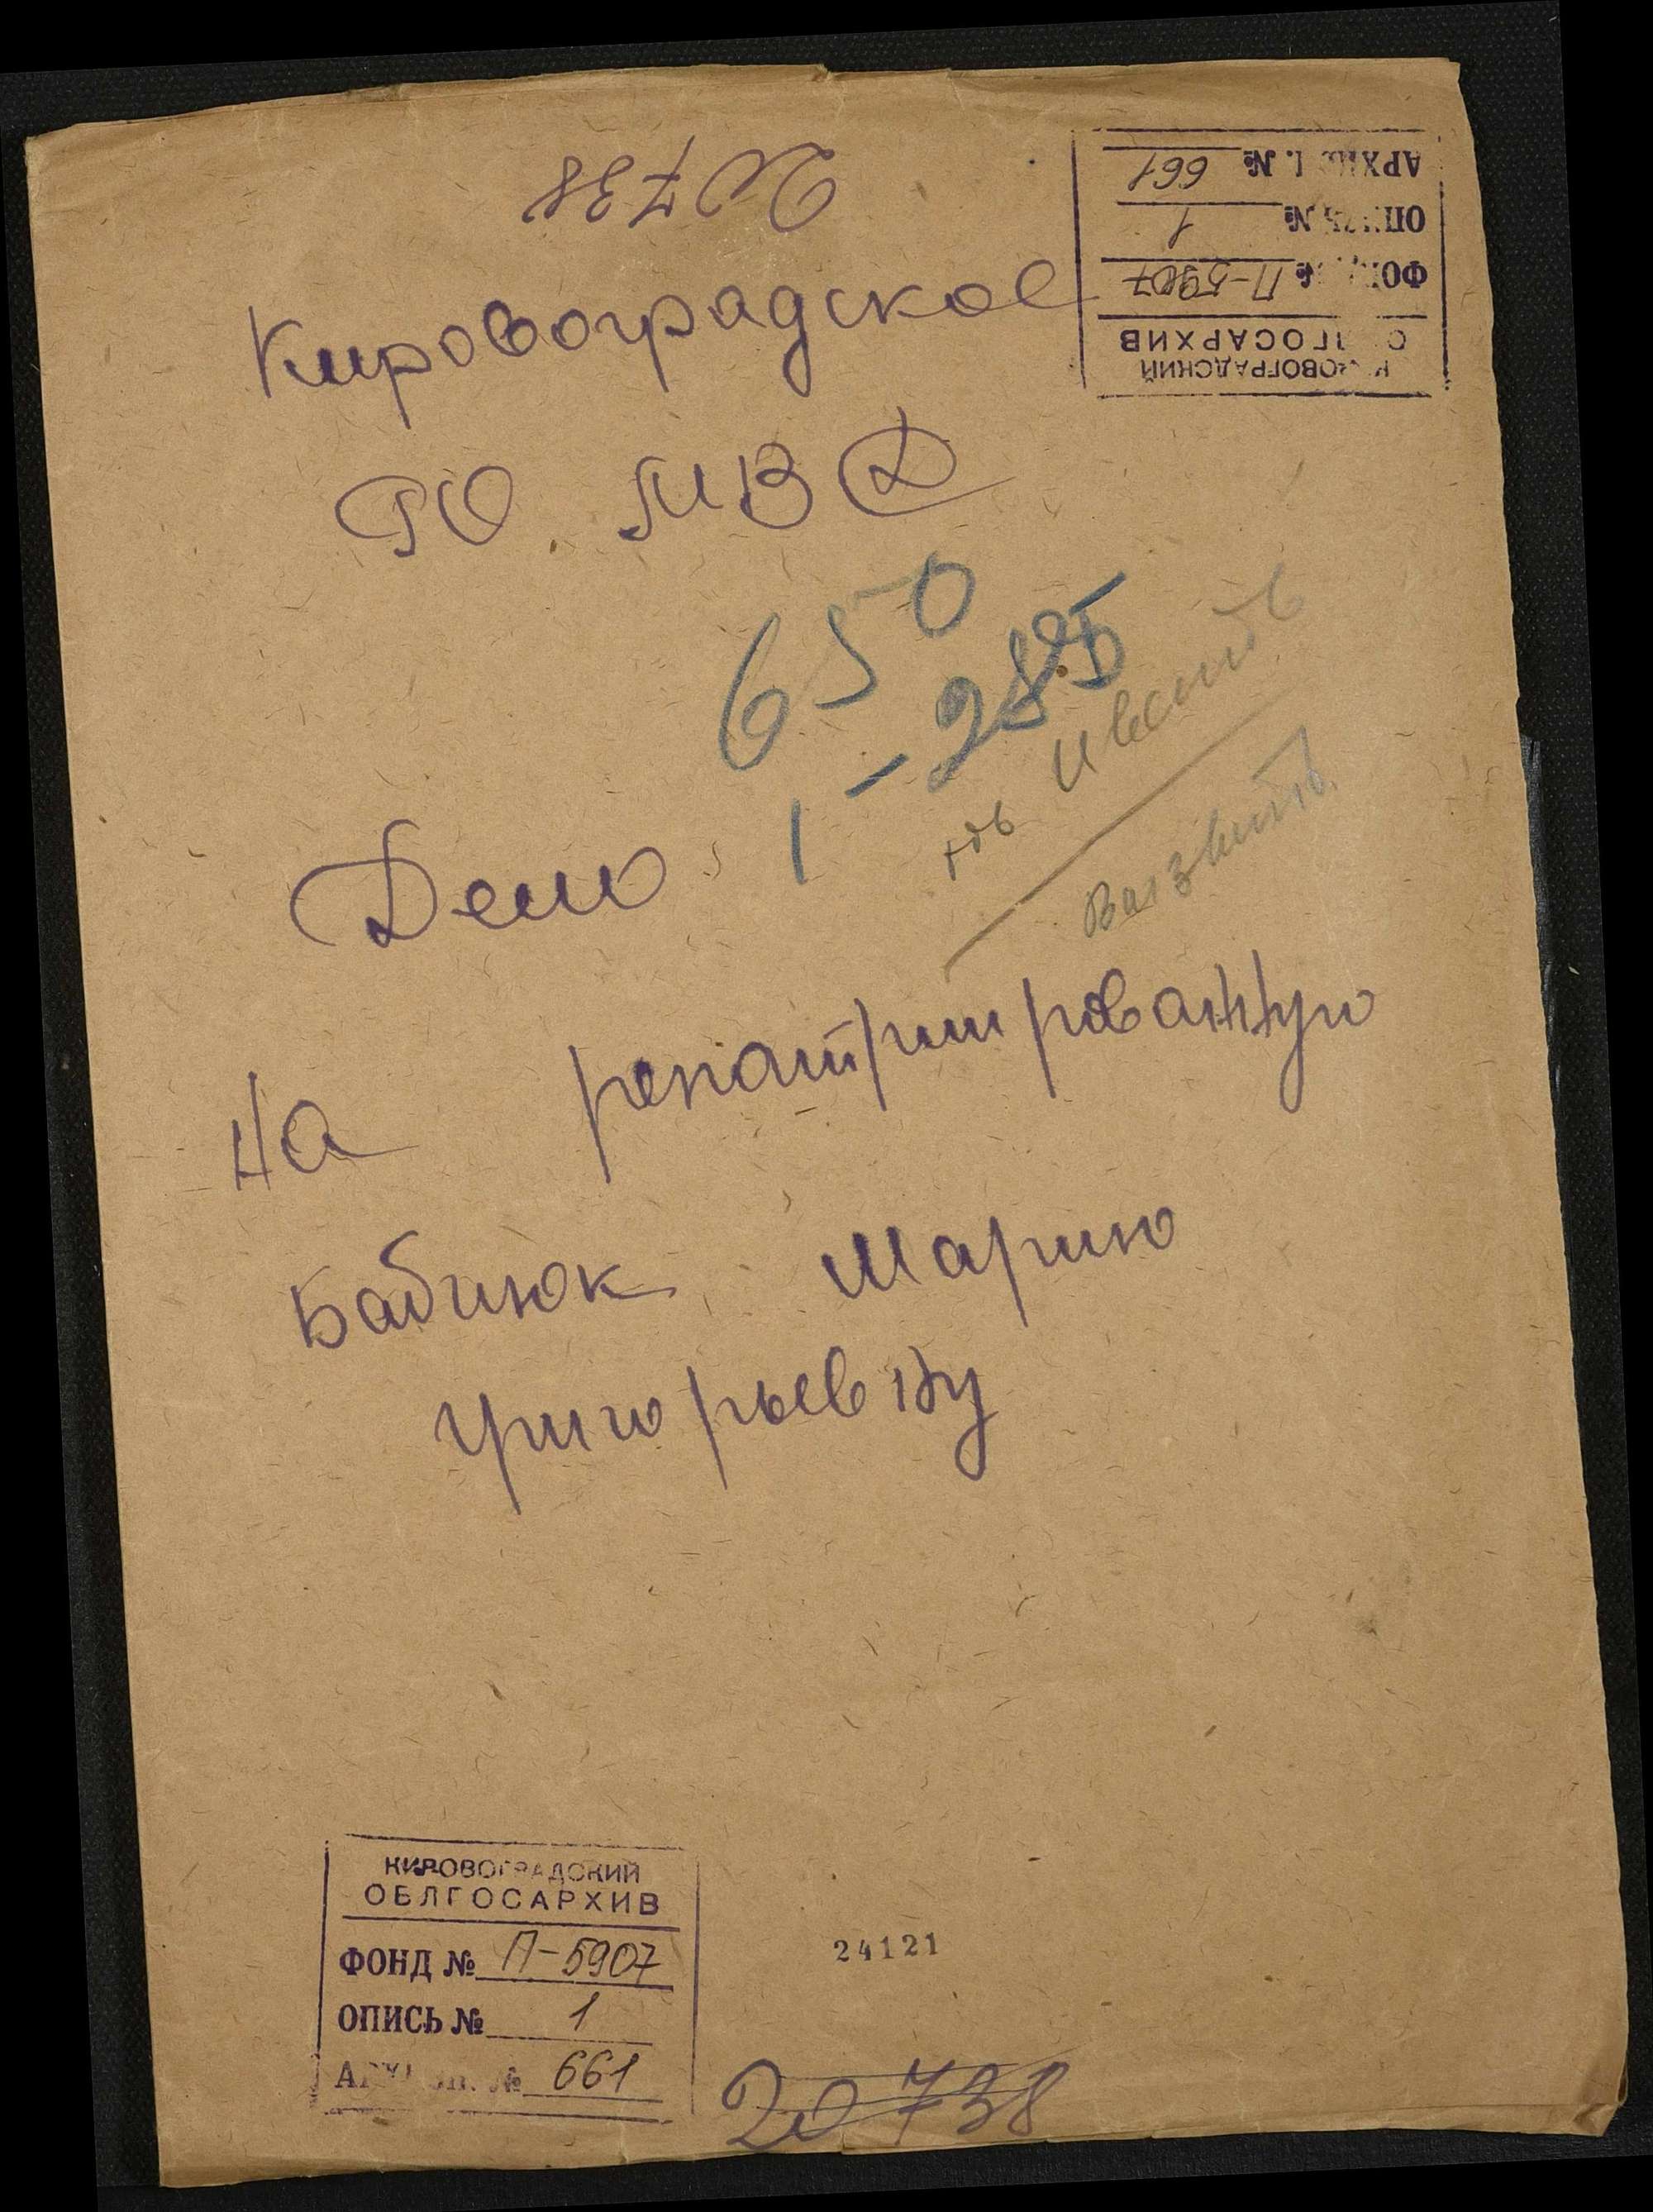 20738
КИРОВОГРАДСКИЙ
ОБЛГОСАРХИВ
ФОНД № П-5907
ОПИСЬ № 1
АРХИВ. № 661
Кировоградское
РО МВД
650
1-285
Дело
на репатриированную
Бабинюк Марию
Григорьевну
КИРОВОГРАДСКИЙ
ОБЛГОСАРХИВ
ФОНД № П-5907
ОПИСЬ № 1
№ 661
24121
20738